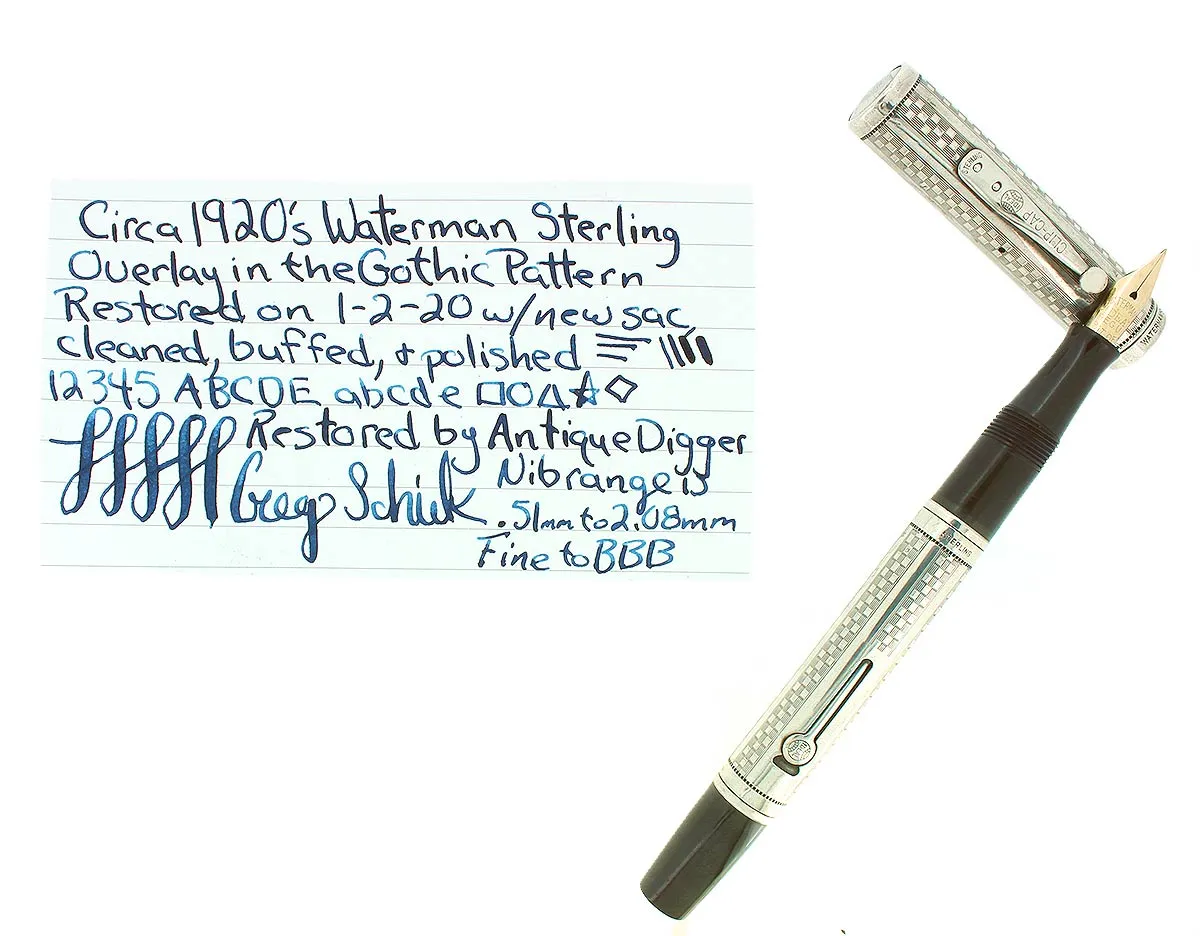 Circa 1920's Waterman Sterling
Overlay in the Gothic Pattern
Restored on 1-2-20 w/new sac,
cleaned, buffed, + polished
12345 ABCDE abcde
Restored by Antique Digger
Greg
Nib range is
.51mm to 2.08mm
Fine to BBB
STERLING
CLIP-CAP
STERLING